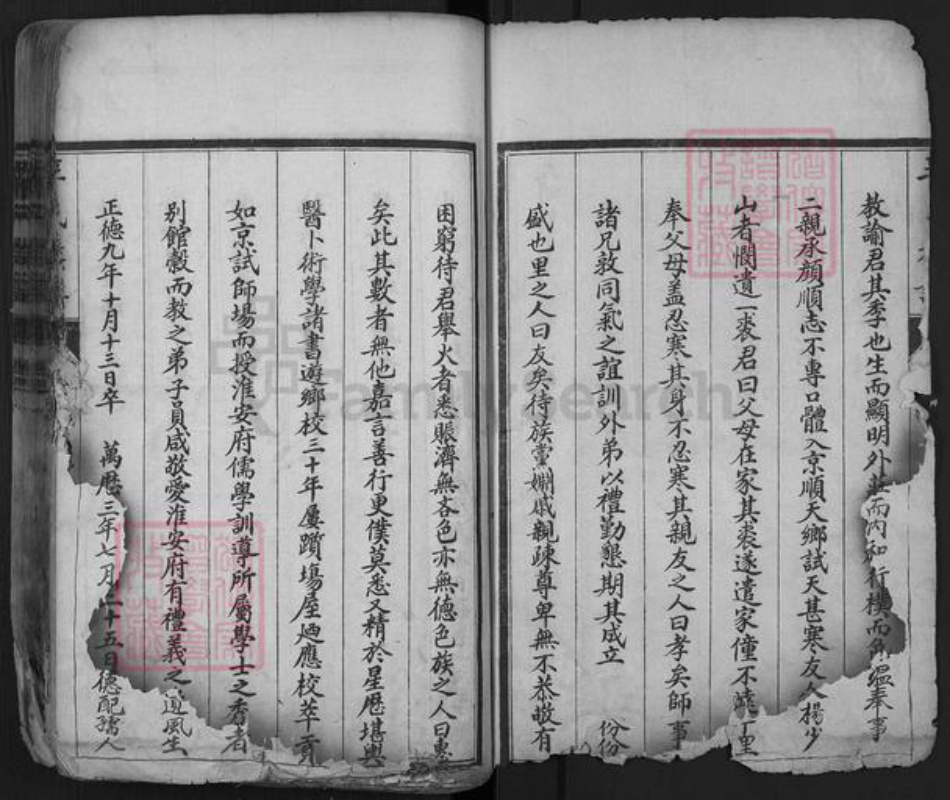 教諭君其季也生而顯明外莊而內和行樸而角縕奉事
二親承顏順志不專口體入京順天鄉試天甚寒友人楊少
山者憫遺一裘君曰父母在家其裘遂遣家僮不遠千里
奉父母盖忍寒其身不忍寒其親友之人曰孝矣師事
諸兄敦同氣之誼訓外弟以禮勤懇期其成立 份份
盛也里之人曰友矣待族黨婣戚親疎尊卑無不恭敬有
困窮待君舉火者悉賑濟無吝色亦無德色族之人曰惠
矣此其數者無他嘉言善行更僕莫悉又精於星曆堪輿
醫卜術學諸書遊鄉校三十年屢躓塲屋廼應校萃貢
如京試師場而授淮安府儒學訓導所屬學士之秀者
別館穀而教之弟子員咸敬愛淮安府有禮義之道風生
正德九年十月十三日卒 萬曆三年七月二十五日德配孺人
FamilySearch